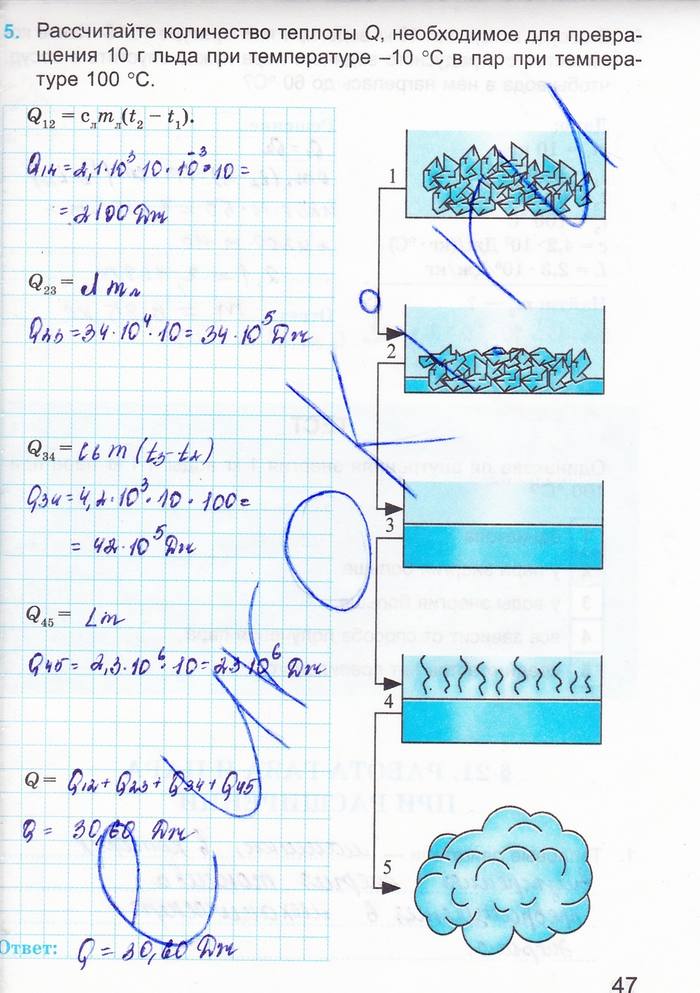 5. Рассчитайте количество теплоты Q, необходимое для превра-
щения 10 г льда при температуре –10 °С в пар при темпера-
туре 100 °С.
Q₁₂ = cлmл(t₂ – t₁).
Q₁₂ = 2,1·10³·10·10⁻³·10 =
= 2100 Дж
Q₂₃ = λ mл
Q₂₃ = 34·10⁴·10 = 34·10⁵ Дж
Q₃₄ = cв m (t₃-t₂)
Q₃₄ = 4,2·10³·10·100 =
= 42·10⁵ Дж
Q₄₅ = Lm
Q₄₅ = 2,3·10⁶·10 = 23·10⁶ Дж
Q = Q₁₂ + Q₂₃ + Q₃₄ + Q₄₅
Q = 30,60 Дж
Ответ: Q = 30,60 Дж
1
2
3
4
5
47